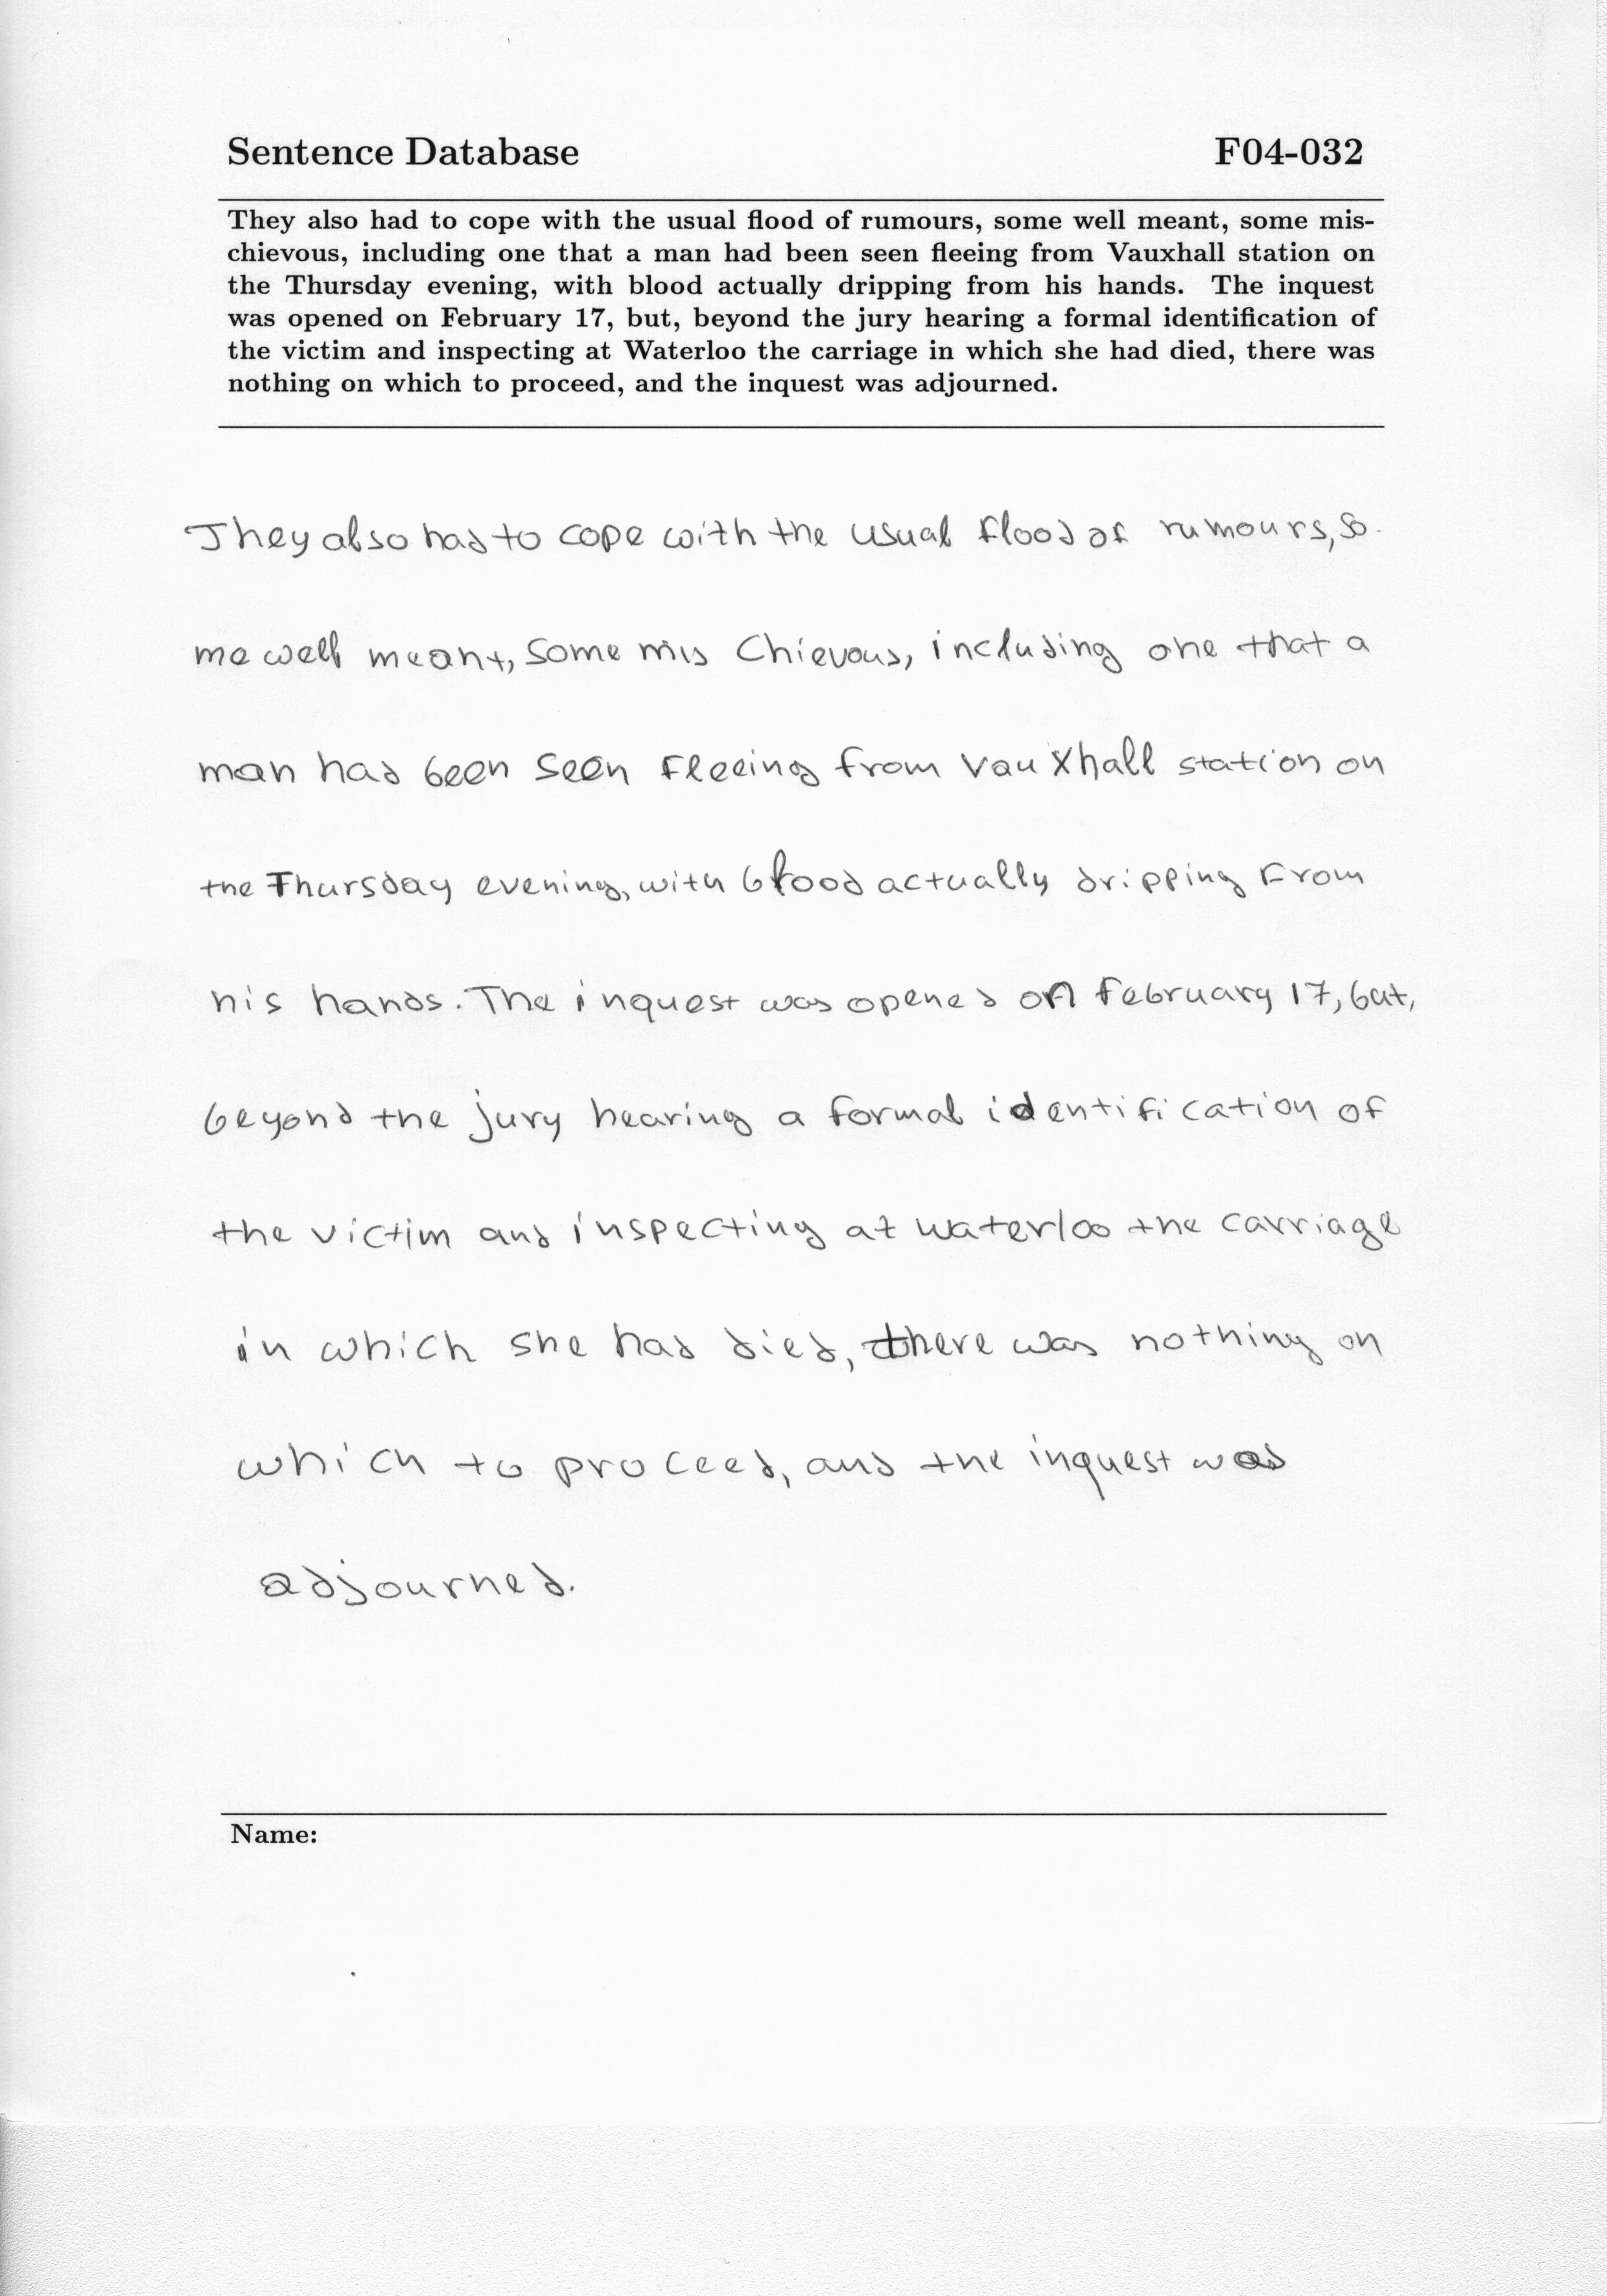 Sentence Database F04-032
They also had to cope with the usual flood of rumours, some well meant, some mis-
chievous, including one that a man had been seen fleeing from Vauxhall station on
the Thursday evening, with blood actually dripping from his hands. The inquest
was opened on February 17, but, beyond the jury hearing a formal identification of
the victim and inspecting at Waterloo the carriage in which she had died, there was
nothing on which to proceed, and the inquest was adjourned.
They also had to cope with the usual flood of rumours, so-
me well meant, some mis chievous, including one that a
man had been seen fleeing from Vauxhall station on
the Thursday evening, with blood actually dripping from
his hands. The inquest was opened on february 17, but,
beyond the jury hearing a formal identification of
the victim and inspecting at waterloo the carriage
in which she had died, there was nothing on
which to proceed, and the inquest was
adjourned.
Name: